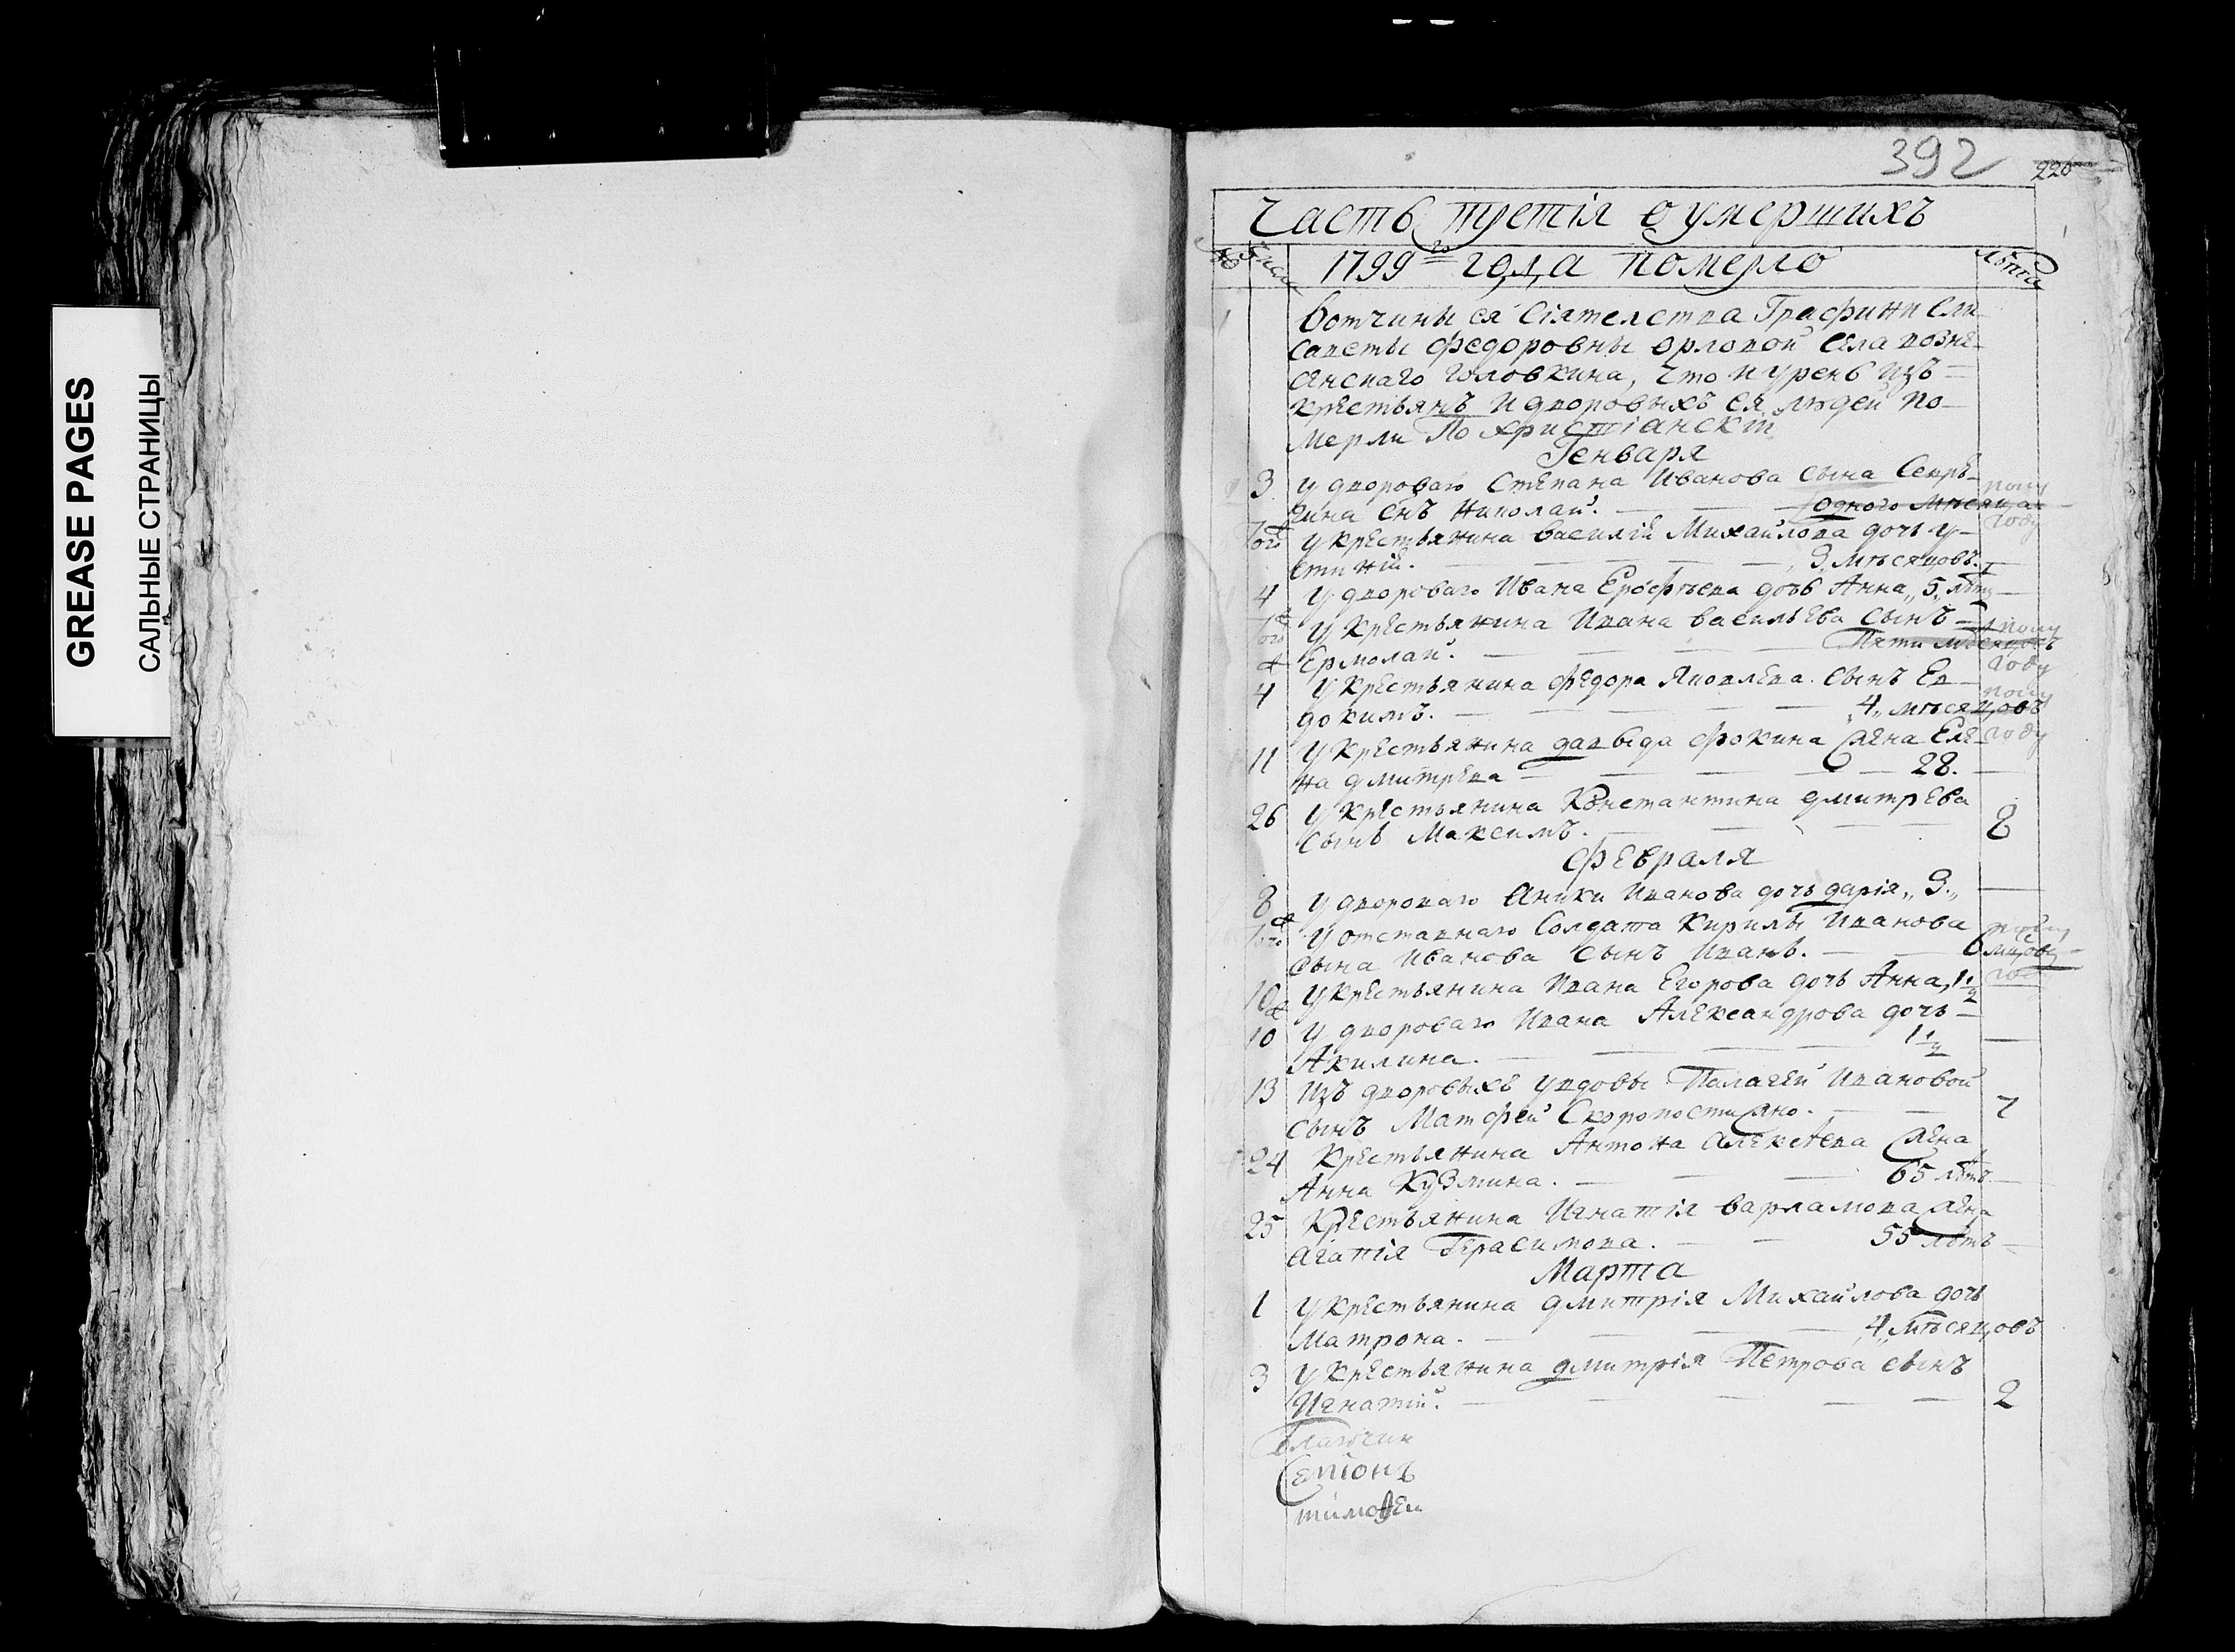 GREASE PAGES
САЛЬНЫЕ СТРАНИЦЫ
392
226
Часть третія о умершихъ
№ Числа 1799го года померло Лѣта
Вотчины ея Сіятелства Графини Ели
саветы Федоровны Орловой села возне
сенскаго головкина, что и урень изъ
крестьянъ и дворовыхъ ея людей по
мерли По христіанскій
Генваря
3 у двороваго Степана Иванова сына
снъ Николай. одного мѣсяца
году
Того у крестьянина василій Михайлова дочь у
стиній. 3, мѣсяцовъ.
4 у двороваго Ивана Ерофѣева дочь Анна „5, лѣтъ
Того у крестьянина Ивана васильева сынъ
Ермолай. Пяти мѣсяцовъ
году
4 у крестьянина Федора Яковлева. сынъ Ев
докимъ. „4„ мѣсяцовъ
году
11 у крестьянина давыда Фокина жена Еле
на дмитрева 28.
26 у крестьянина Константина дмитрева
сынъ Максимъ. 8
Февраля
8 у двороваго Аники Иванова дочь дарія „3„
Того у отставнаго Солдата Кирилы Иванова
сына Иванова сынъ Иванъ. 6
10 у крестьянина Ивана Егорова дочь Анна, 1 1/2
10 у двороваго Ивана Александрова дочь
Акилина. 1 1/2
13 Изъ дворовыхъ удовы Палагеи Ивановой
сынъ Матфей Скоропостижно. 7
24 Крестьянина Антона алексѣева жена
Анна Кузмина. 65 лѣтъ
25 Крестьянина Игнатія варламова жена
агапія Герасимова. 55 лѣтъ
Марта
1 у крестьянина дмитрія Михайлова дочь
Матрона. „4„ мѣсяцовъ
3 у крестьянина дмитрія Петрова сынъ
Игнатій. 2
Благочин
Семіонъ
тимоѳеи